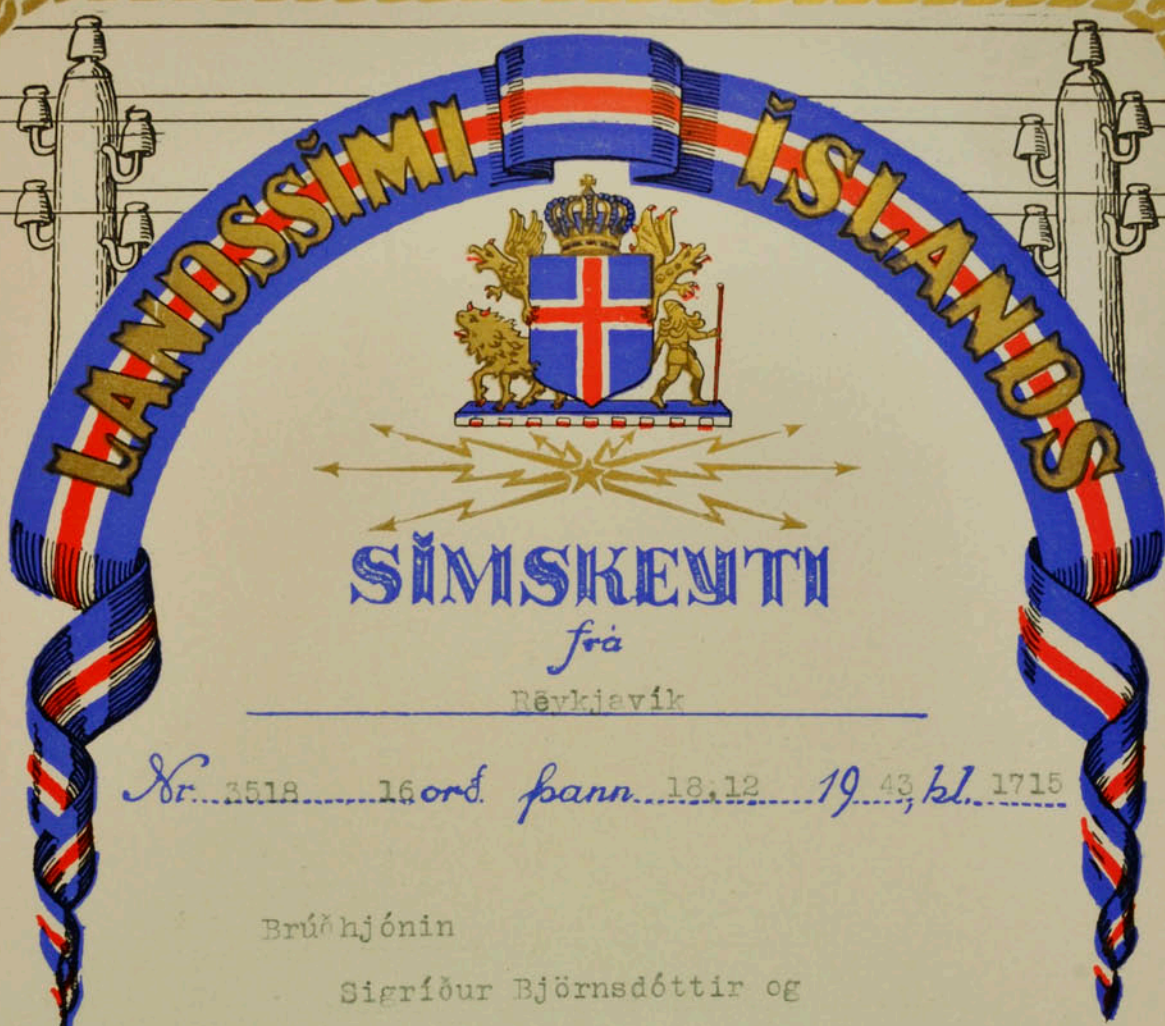 LANDSSÍMI ÍSLANDS
SÍMSKEYTI
frá
Reykjavík
Nr. 3518 16 orð. þann 18.12 19 43, kl. 1715
Brúðhjónin
Sigríður Björnsdóttir og